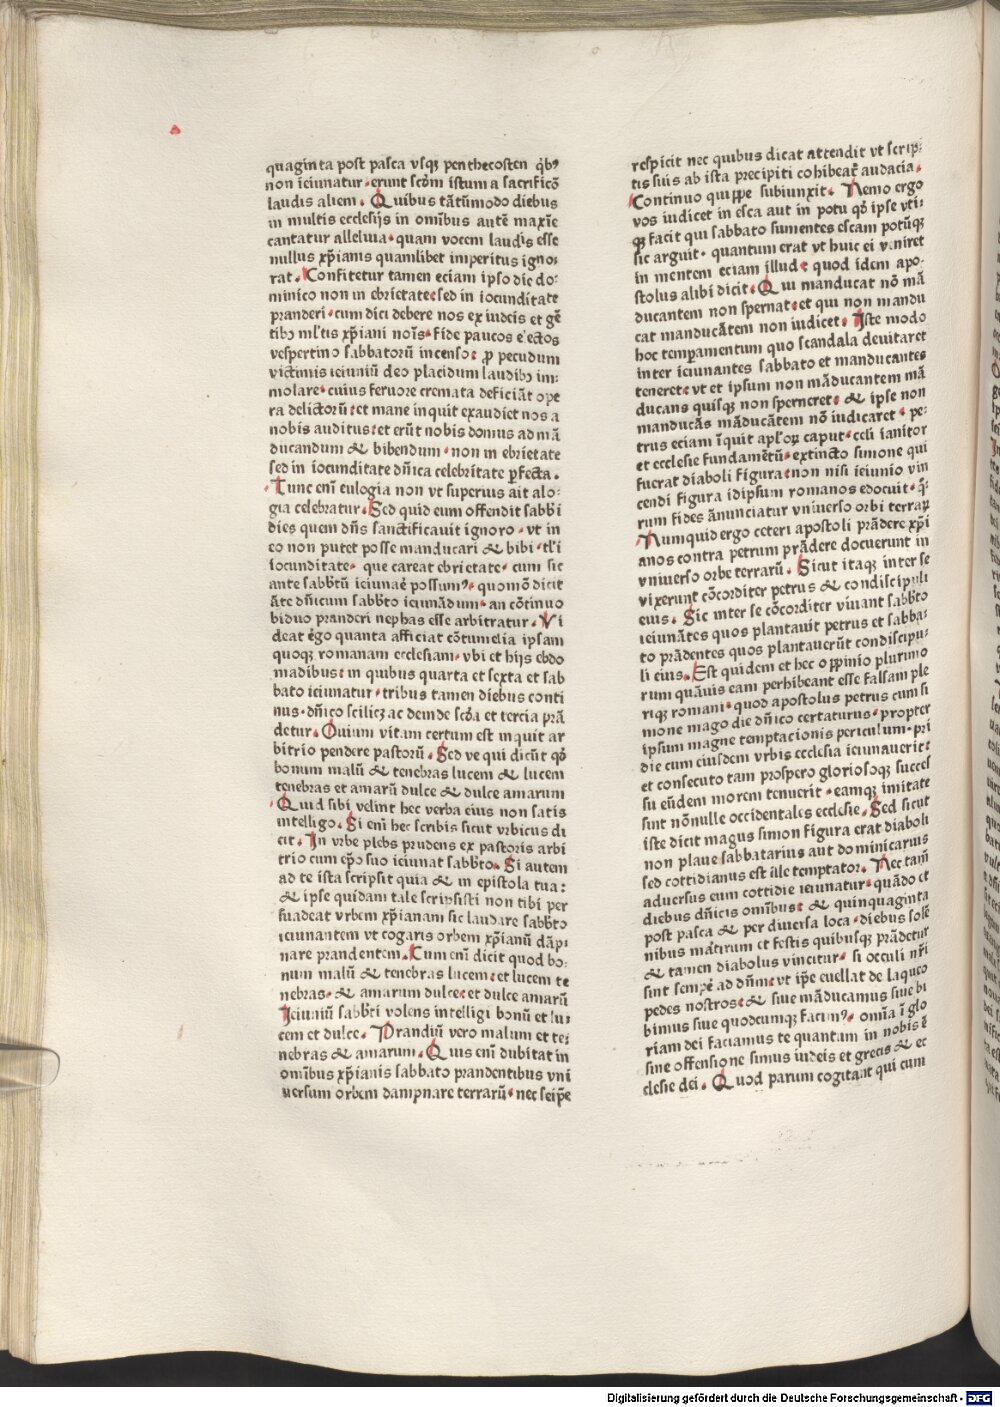 quaginta post pasca vsqꝫ penthecosten q̄bꝰ
non ieiunatur. erunt scd̄m istum a sacrificō
laudis alieni. Quibus tātūmodo diebus
in multis ecclesijs in omībus autē maxīe
cantatur alleluia. quam vocem laudis esse
nullus xp̄ianis quamlibet imperitus igno⸗
rat. Confitetur tamen eciam ipso die do⸗
minico non in ebrietate. sed in iocunditate
pranderi. cum dici debere nos ex iudeis et gē
tibꝰ ml̓tis xp̄iani noīs. fide paucos eˀectos
vespertino sabbatorū incenso: ꝓ pecudum
victimis ieiuniū deo placidum laudibꝰ im⸗
molare. cuius feruore cremata deficiāt ope
ra delictorū: et mane inquit exaudiet nos a
nobis auditus: et erūt nobis domus ad mā
ducandum & bibendum. non in ebrietate
sed in iocunditate dn̄ica celebritate ꝑfecta.
Tunc enī eulogia non vt superius ait alo⸗
gia celebratur. Sed quid eum offendit sabb̄i
dies quem dn̄s sanctificauit ignoro. vt in
eo non putet posse manducari & bibi. tl̓i
iocunditate. que careat ebrietate. cum sic
ante sabbt̄ū ieiunaē possumꝰ. quomō dicit
āte dn̄icum sabbt̄o ieiunādum. an cōtinuo
biduo pranderi nephas esse arbitratur. Vi
deat ēgo quanta afficiat cōtumelia ipsam
quoqꝫ romanam ecclesiam. vbi et hijs ebdo
madibus: in quibus quarta et sexta et sab
bato ieiunatur. tribus tamen diebus conti
nus. dn̄ico scilicꝫ ac deinde scd̄a et tercia prā
detur. Ouium vitam certum est inquit ar
bitrio pendere pastorū. Sed ve qui dicūt qđ
bonum malū & tenebras lucem & lucem
tenebras et amarū dulce & dulce amarum
Quid sibi velint hec verba eius non satis
intelligo. Si enī hec scribis sicut vrbicus di
cit. In vrbe plebs prudens ex pastoris arbi
trio cum ep̄o suo ieiunat sabbt̄o. Si autem
ad te ista scripsit quia & in epistola tua:
& ipse quidam tale scripsisti non tibi per
suadeat vrbem xp̄ianam sic laudare sabbt̄o
ieiunantem vt cogaris orbem xp̄ianū dāp⸗
nare prandentem. Cum enī dicit quod bo⸗
num malū & tenebras lucem: et lucem te
nebras. & amarum dulce: et dulce amarū
Ieiuniū sabbt̄i volens intelligi bonū et lu⸗
cem et dulce. Prandiū vero malum et te⸗
nebras & amarum. Quis enī dubitat in
omībus xp̄ianis sabbato prandentibus vni
uersum orbem dampnare terrarū. nec seip̄e
respicit nec quibus dicat attendit vt scrip⸗
tis suis ab ista precipiti cohibeat̄ audacia.
Continuo quippe subiunxit. Nemo ergo
vos iudicet in esca aut in potu qđ ipse vti⸗
qꝫ facit qui sabbato sumentes escam potūqꝫ
sic arguit. quantum erat vt huic ei veniret
in mentem eciam illud: quod idem apo⸗
stolus alibi dicit. Qui manducat nō mā
ducantem non spernat: et qui non mandu
cat manducātem non iudicet. Iste modo
hoc temperamentum quo scandala deuitaret
inter ieiunantes sabbato et manducantes
teneret: vt et ipsum non māducantem mā
ducans quisqꝫ non sperneret: & ipse non
manducās māducātem nō iudicaret. pe⸗
trus eciam īquit apl̓oꝝ caput. celi ianitor
et ecclesie fundamētū. extincto simone qui
fuerat diaboli figura. non nisi ieiunio vin
cendi figura idipsum romanos edocuit. q̄⸗
rum fides ānunciatur vniuerso orbi terraꝝ
Numquid ergo ceteri apostoli prādere xp̄i
anos contra petrum prādere docuerunt in
vniuerso orbe terrarū. Sicut itaqꝫ inter se
vixerunt cōcorditer petrus & condiscipuli
eius. Sic inter se cōcorditer viuant sabbt̄o
ieiunātes quos plantauit petrus et sabba⸗
to prādentes quos plantauerūt condiscipu⸗
li eius. Est quidem et hec oppinio plurimo
rum quāuis eam perhibeant esse falsam ple
riqꝫ romani. quod apostolus petrus cum si
mone mago die dn̄ico certaturus. propter
ipsum magne temptacionis periculum. pri
die cum eiusdem vrbis ecclesia ieiunauerit:
et consecuto tam prospero gloriosoqꝫ succes
su eūdem morem tenuerit. eamqꝫ imitate
sunt nōnulle occidentales ecclesie. Sed sicut
iste dicit magus simon figura erat diaboli
non plane sabbatarius aut dominicarius
sed cottidianus est ille temptator. Nec tam̄
aduersus eum cottidie ieiunatur. quādo et
diebus dn̄icis omībus: & quinquaginta
post pasca & per diuersa loca. diebus solē
nibus mar̄irum et festis quibusqꝫ prādetur
& tamen diabolus vincitur. si occuli nr̄i
sint sempē ad dn̄m: vt ip̄e euellat de laqueo
pedes nostros: & siue māducamus siue bi
bimus siue quodcumqꝫ facimꝰ. omīa ī glo
riam dei faciamus te quantum in nobis ē
sine offensione simus iudeis et grecis & ec
clesie dei. Quod parum cogitant qui cum
Digitalisierung gefördert durch die Deutsche Forschungsgemeinschaft - DFG